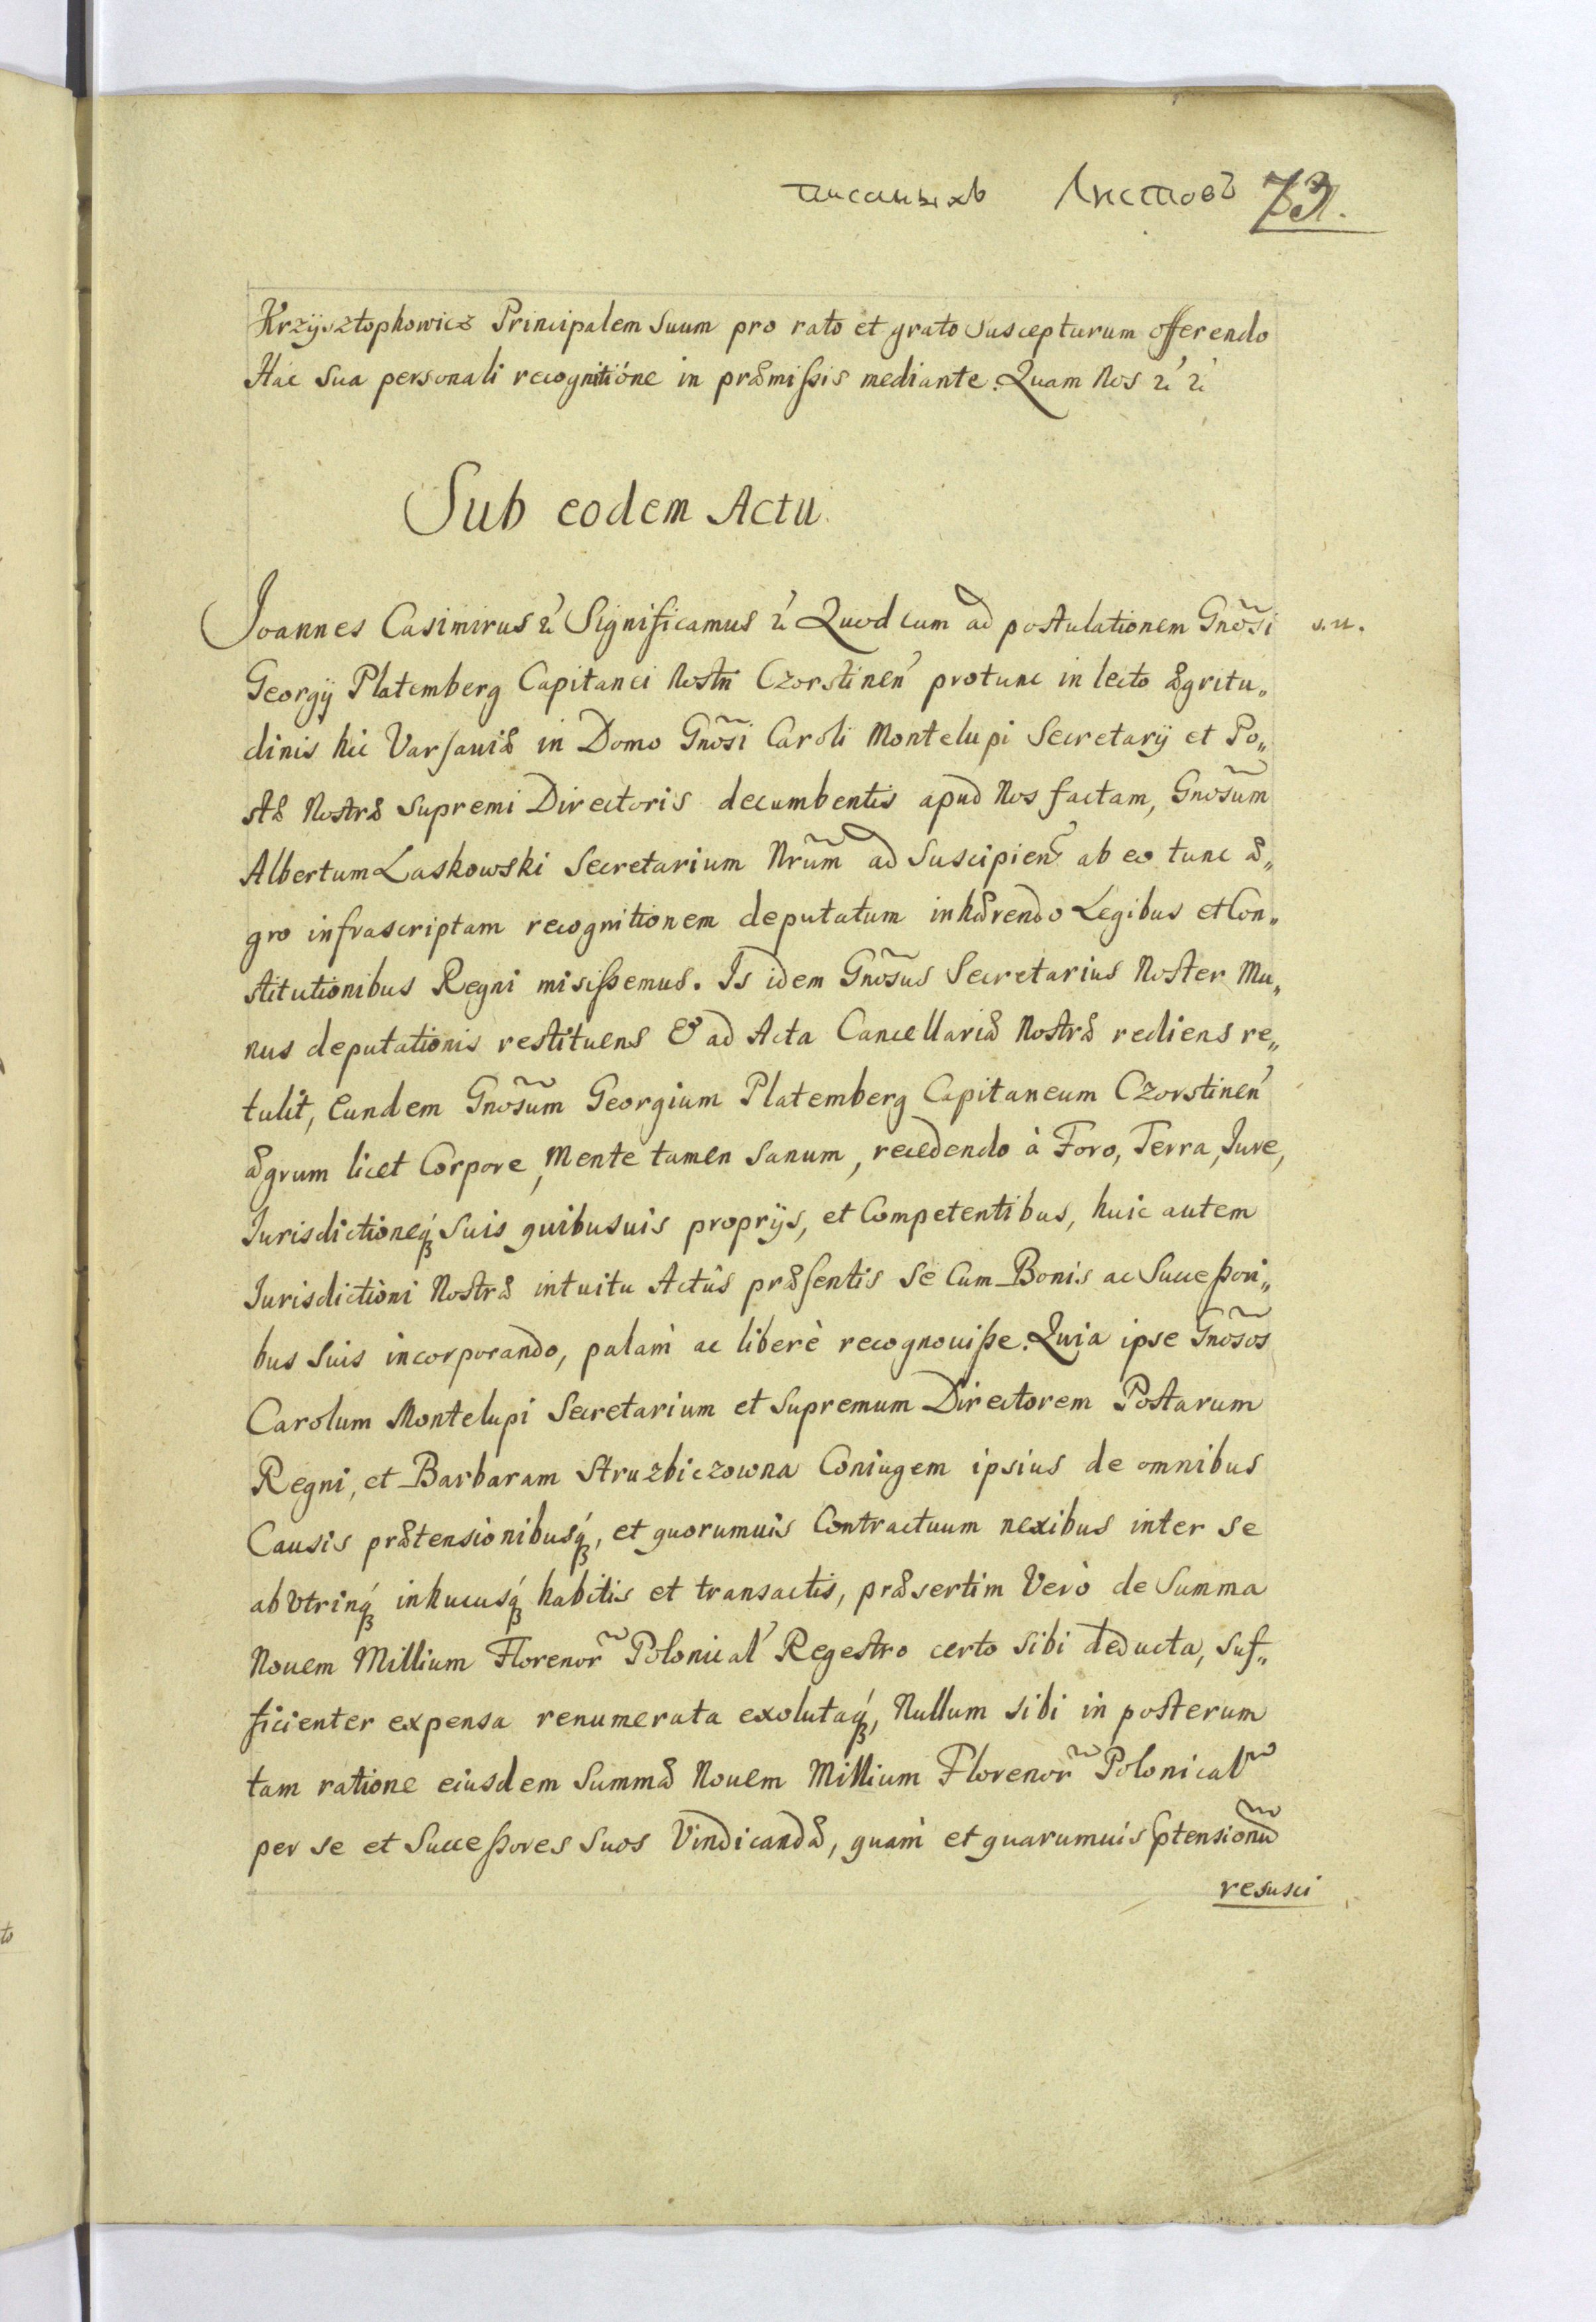 писаныхъ Листовъ 73.
Krzÿsztophowicz Principalem suum pro rato et grato suscepturum offerendo
Hac sua personali recognitióne in præmißis mediante. Quam Nos &c &c
Sub eodem Actu
Joannes Casimirus &c Significamus &c Quod cum ad postulationem Gnõsi
Georgÿ Platemberg Capitanei Nostri Czorstinen̕ protunc in lecto ægritu„
dinis hic Varsauiæ in Domo Gnõsi Caroli Montelupi Secretarÿ et Po„
stæ Nostræ Supremi Directoris decumbentis apud Nos factam, Gnõsum
Albertum Laskowski Secretarium Nrũm ad Suscipien̕ ab eo tunc æ„
gro infrascriptam recognitionem deputatum inhærendo Legibus et Con„
stitutionibus Regni misißemus. Is idem Gnõsus Secretarius Noster Mu„
nus deputationis restituens & ad Acta Cancellariæ Nostræ rediens re„
tulit, Eundem Gnõsum Georgium Platemberg Capitaneum Czorstinen̕
ægrum licet Corpore, Mente tamen sanum, recedendo à Foro, Terra, Jure,
Jurisdictioneq́ꝫ suis quibusuis proprÿs, et Competentibus, huic autem
Jurisdictioni Nostræ intuitu Actûs præsentis se Cum Bonis ac Succeßori„
bus suis incorporando, palam̀ ac liberè recognouiße. Quia ipse Gnõsos
Carolum Montelupi Secretarium et Supremum Directorem Postarum
Regni, et Barbaram Struzbiczowna Coniugem ipsius de omnibus
Causis prætensionibusq́ꝫ, et quorumuis Contractuum nexibus inter se
ab Vtrinq́ꝫ inhucusq́ꝫ habitis et transactis, præsertim Verò de Summa
Nouem Millium Florenor̃ Polonical̕ Regestro certo sibi deducta, suf„
ficienter expensa renumerata exolutaq́ꝫ, Nullum sibi in posterum
tam ratione eiusdem Summæ Nouem Millium Florenor̃ Polonical̃
per se et Succeßores suos Vindicandæ, quam̀ et quarumuis Ptensionũ
resusci